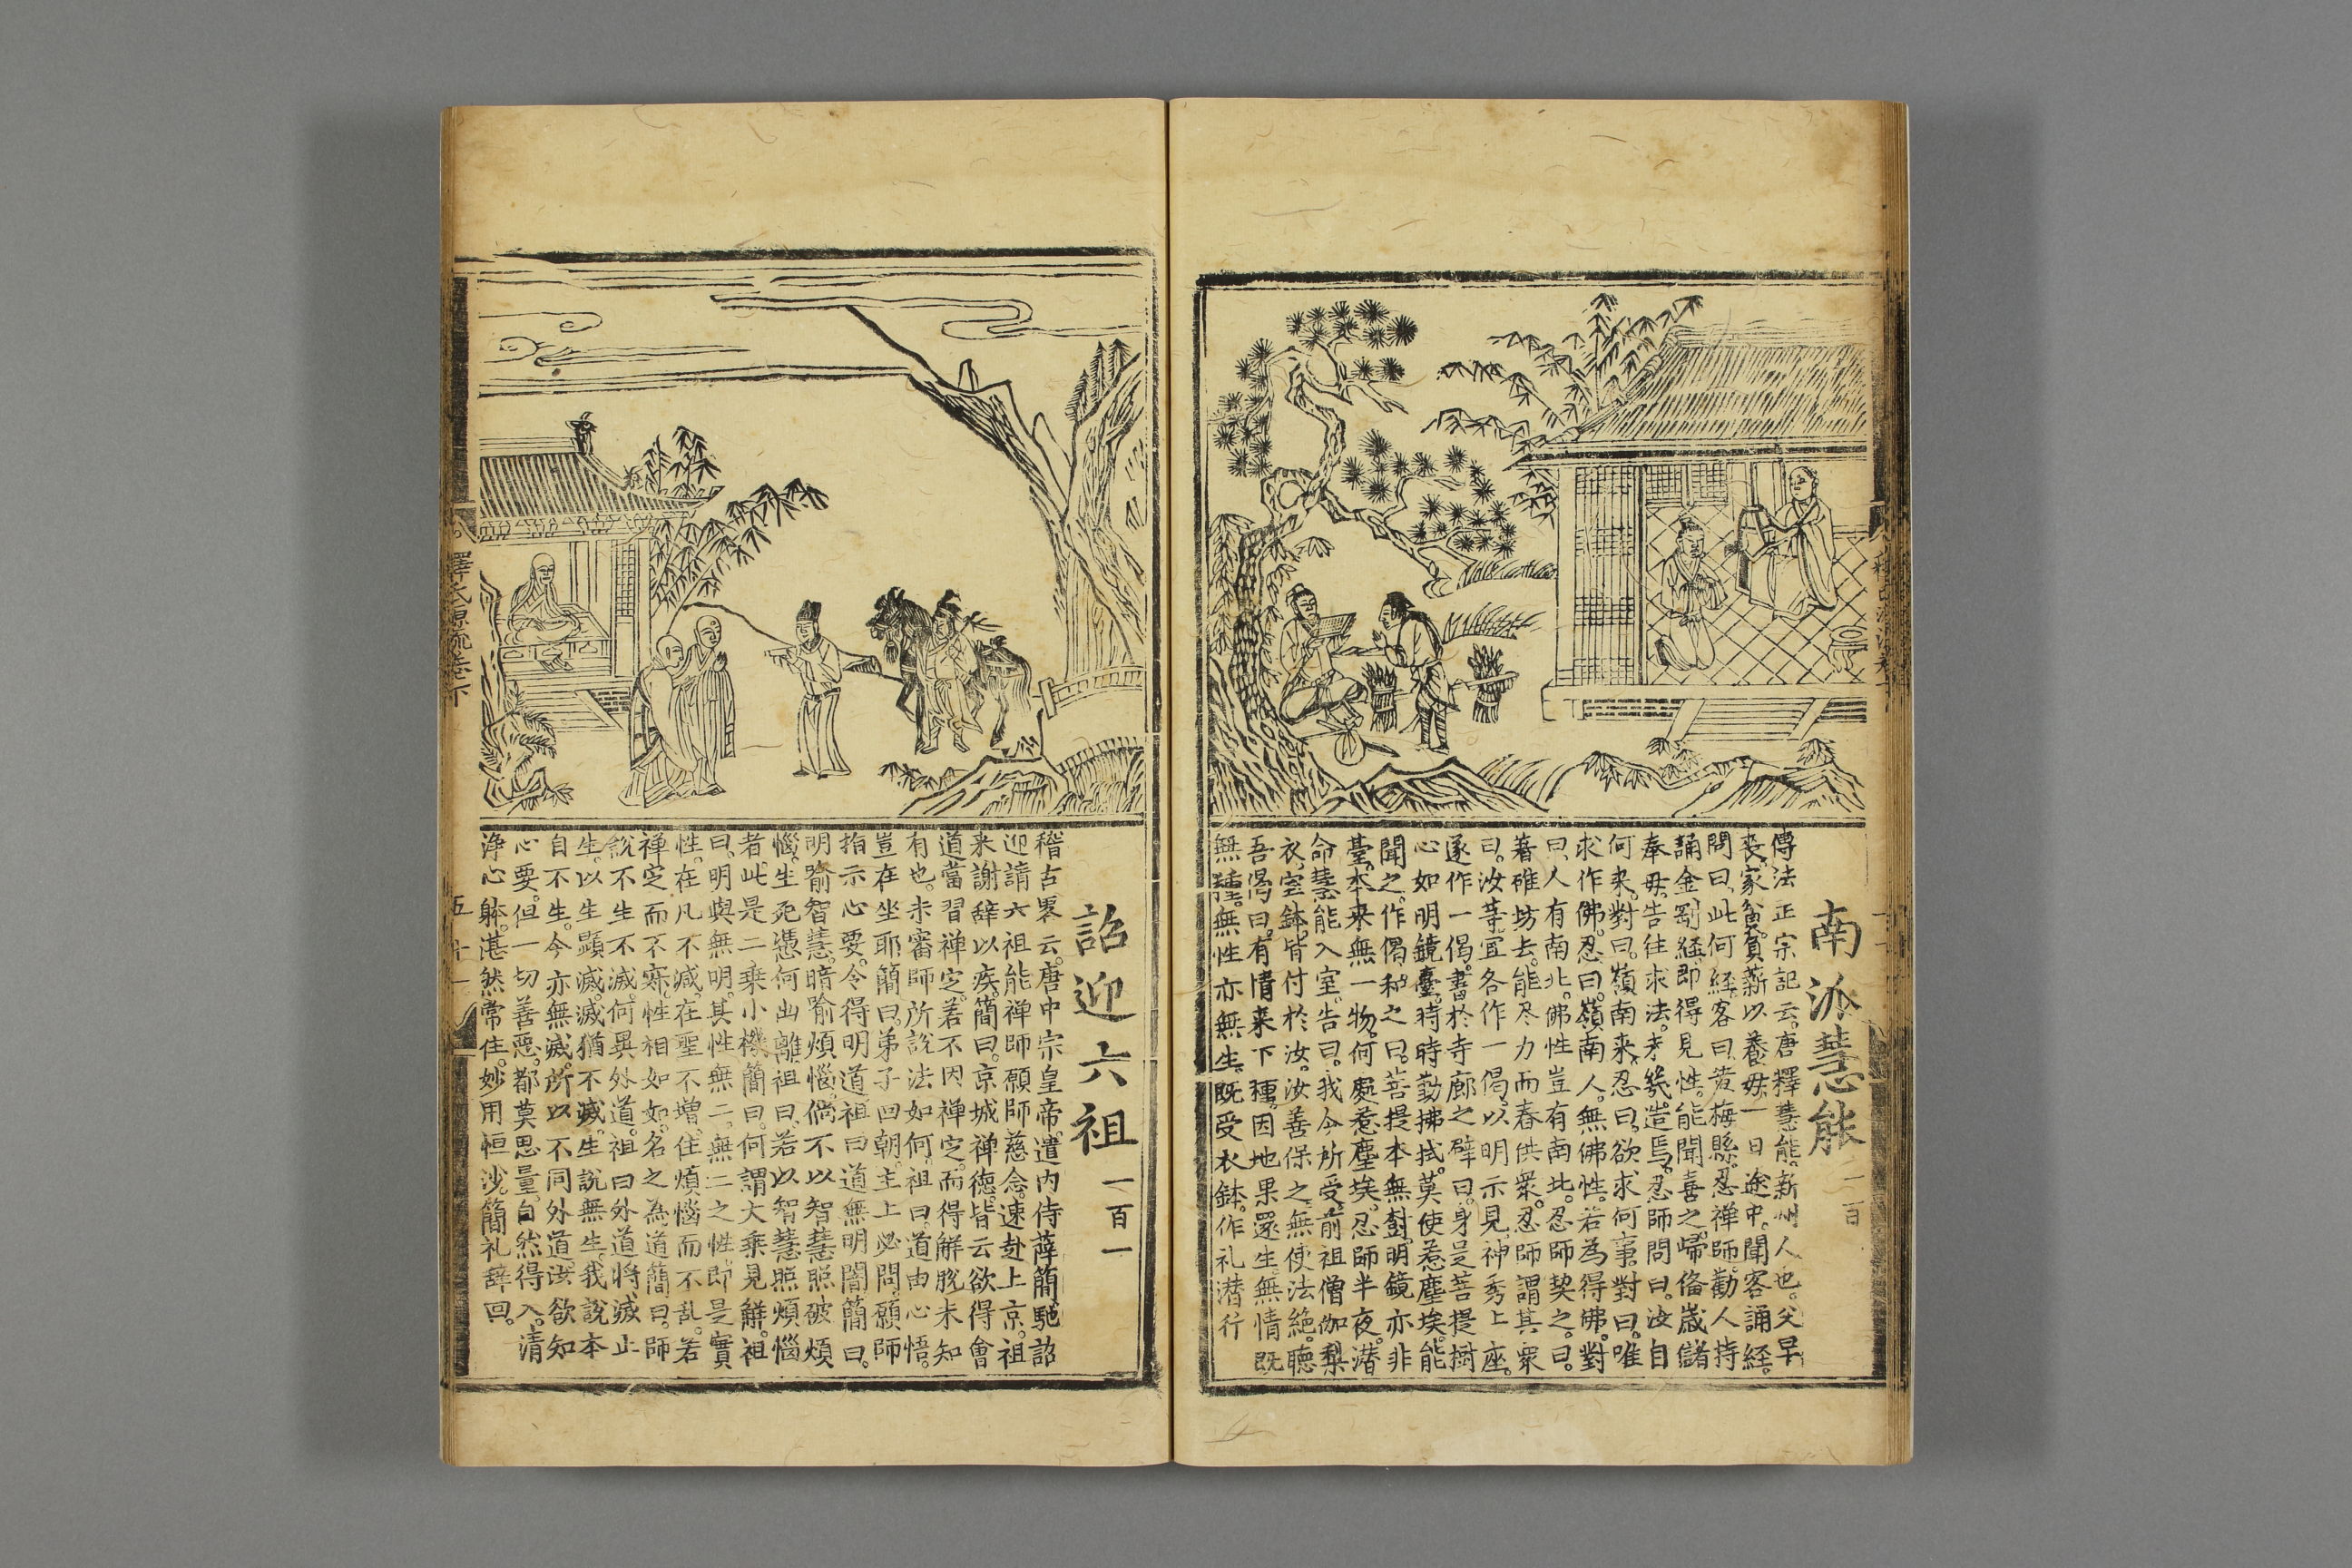 南派慧能 一百
傳法正宗記云。唐釋慧能。新州人也。父早
丧。家貧。負薪以養母。一日途中。聞客誦經。
問曰。此何經。客曰。黄梅縣。忍禅師。勸人持
誦金剛経。即得見性。能聞喜之。歸俻歳儲
奉母。告往求法。才幾。造焉。忍師問曰。汝自
何来。對曰。嶺南来。忍曰。欲求何事。對曰。唯
求作佛。忍曰。嶺南人。無佛性。若為得佛。對
曰。人有南北。佛性豈有南北。忍師契之。曰。
著碓坊去。能尽力而舂供衆。忍師謂其衆
曰。汝等宜各作一偈。以明示見。神秀上座。
遂作一偈。書於寺廊之壁曰。身是菩提樹
心如明鏡臺。時時勤拂拭。莫使惹塵埃。能
聞之。作偈。和之曰。菩提本無樹。明鏡亦非
臺。本来無一物。何處惹塵埃。忍師半夜。潜
命慧能入室。告曰。我今所受。前祖僧伽梨
衣。宝鉢。皆付於汝。汝善保之。無使法絶。聴
吾偈曰。有情来下種。因地果還生。無情既
無種。無性亦無生。既受衣鉢。作礼潜行
詔迎六祖 一百一
稽古畧云。唐中宗皇帝。遣内侍薛簡。馳詔
迎請六祖能禅師。願師慈念。速赴上京。祖
来謝辞以疾。簡曰。京城禅徳。皆云欲得會
道。當習禅定。若不因禅定。而得解脱。未知
有也。未審師所説法如何。祖曰。道由心悟。
豈在坐耶。簡曰。弟子回朝。主上必問。願師
指示心要。令得明道。祖曰。道無明闇。簡曰。
明喻智慧。暗喻煩惱。倘不以智慧照破煩
惱。生死憑何出離。祖曰。若以智慧照煩惱
者。此是二乗小機。簡曰。何謂大乗見解。祖
曰。明與無明。其性無二。無二之性。即是實
性。在凡不减。在聖不增。住煩惱而不乱。若
禅定而不寂。性相如如。名之為道。簡曰。師
説不生不滅。何異外道。祖曰外道将滅止
生。以生顕滅。滅猶不滅。生説無生。我説本
自不生。今亦無滅。所以不同外道。汝欲知
心要。但一切善惡。都莫思量。自然得入。清
浄心躰。湛然常住。妙用恒沙。簡礼辞回。
釋氏源流巻下
五十一